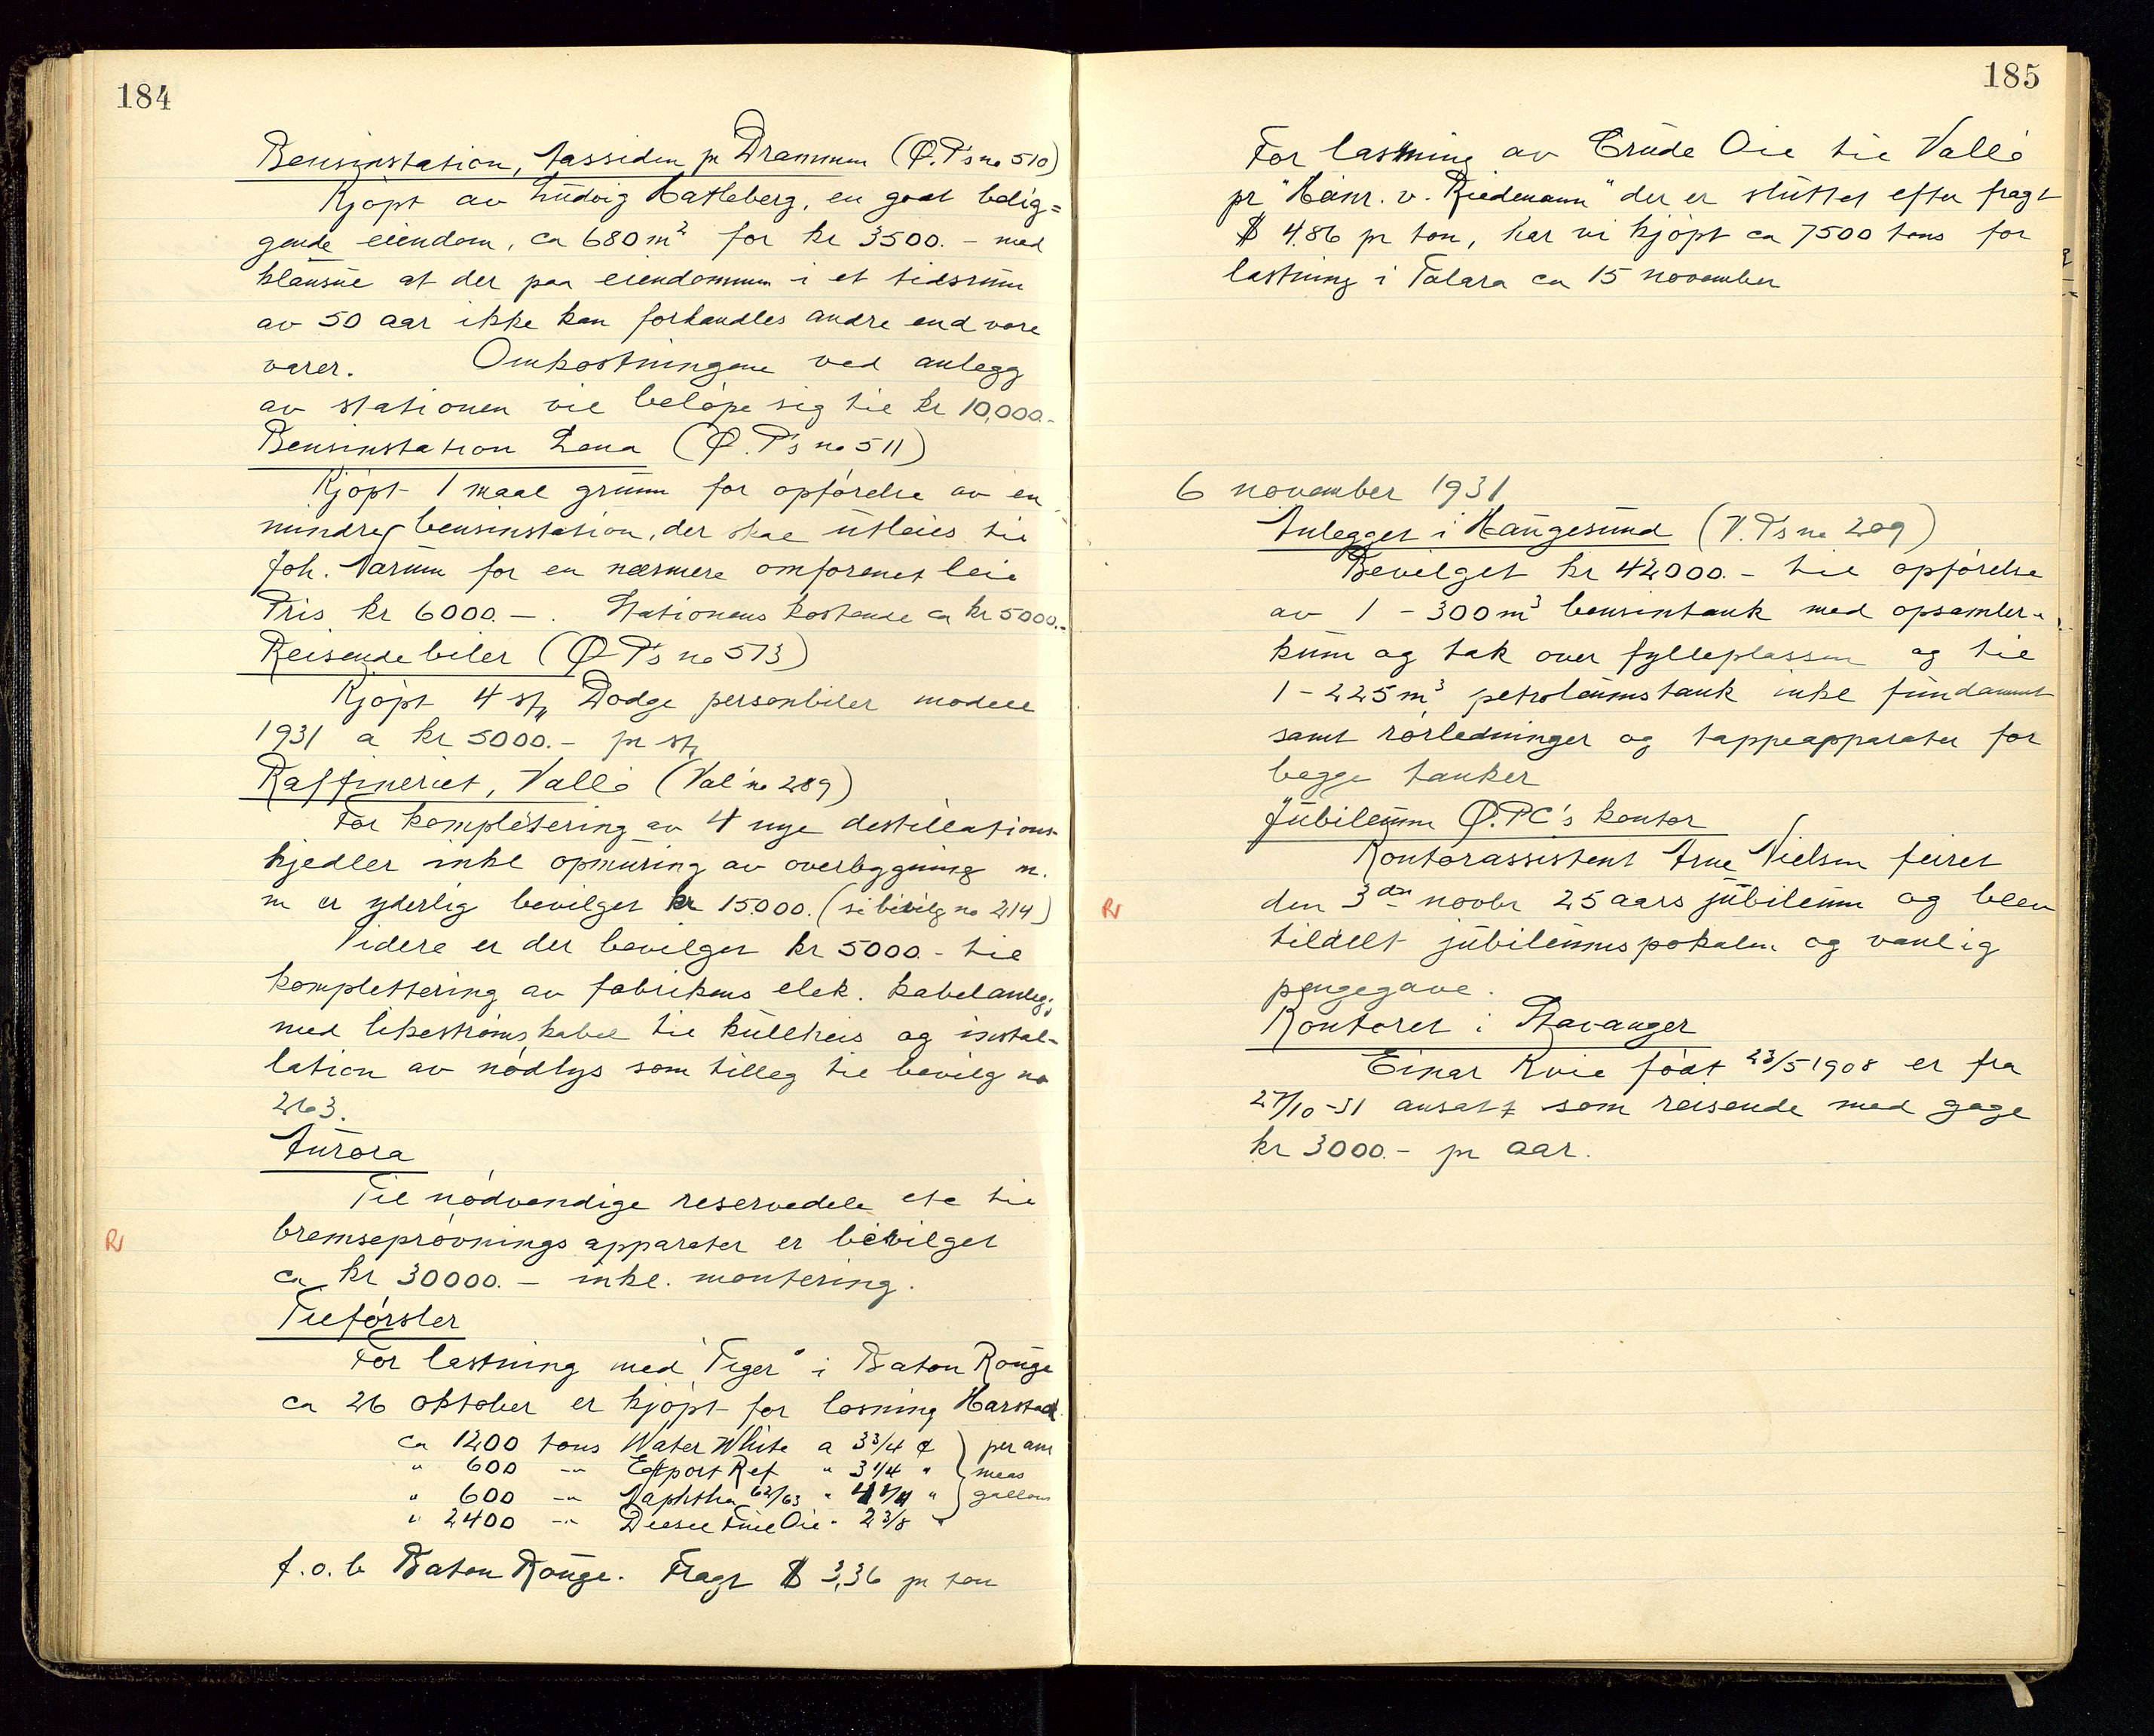 184
Bensinstation, Aassiden pr Drammen (Ø.P's no 510)
Kjøpt av Ludvig Hatleberg, en godt belig=
gende eiendom, ca 680 m² for kr 3500.- med
klausul at der paa eiendommen i et tidsrum
av 50 aar ikke kan forhandles andre end vore
varer. Omkostningene ved anlegg
av stationen vil beløpe sig til kr 10,000.-
Bensinstation Lena (Ø.P's no 511)
Kjøpt 1 maal grunn for opførelse av en
mindre bensinstation, der skal utleies til
Joh. Narum for en nærmere omforenet leie
Pris kr 6000.-. Stationens kostende ca kr 5000.-
Reisendebiler (Ø.P's no 513)
Kjøpt 4 stk Dodge personbiler modell
1931 a kr 5000.- pr stk
Raffineriet, Vallø (Val no 289)
For komplettering av 4 nye destillations-
kjedler inkl opmuring av overbygning m.
m er yderlig bevilget kr 15.000. (se bevilg no 214)
Videre er der bevilget kr 5000.- til
komplettering av fabrikens elek. kabelanleg,
med likestrømskabel til kullheis og instal-
lation av nødlys som tilleg til bevilg no
263.
Aurora
Til nødvendige reservedele etc til
R bremseprøvningsapparater er bevilget
ca kr 30000.- inkl. montering.
Tilførsler
For lastning med "Tiger" i Baton Rouge
ca 26 oktober er kjøpt for losning Harstad
ca 1200 tons Water White a 3 3/4 ¢ } per am
" 600 -"- Export Ref " 3 1/4 " } meas
" 600 -"- Naphtha 62/63 " " } gallon
" 2400 -"- Diesel Fuel Oil " 2 3/8 "
f.o.b Baton Rouge. Fragt $ 3,36 pr ton
185
For lastning av Crude Oil til Vallø
pr "Heinr. v. Riedemann" der er sluttet efter fragt
$ 4.86 pr ton, har vi kjøpt ca 7500 tons for
lastning i Talara ca 15 november
6 november 1931
Anlegget i Haugesund (V.P's no 209)
Bevilget kr 42000.- til opførelse
av 1 - 300 m³ bensintank med opsamler-
kum og tak over fylleplassen og til
1 - 225 m³ petroleumstank inkl fundament
samt rørledninger og tappeapparater for
begge tanker
Jubileum Ø.P.C's kontor
Kontorassistent Arne Nielsen feiret
R den 3dje novbr 25 aars jubileum og blev
tildelt jubileumspokalen og vanlig
pengegave.
Kontoret i Stavanger
Einar Kvie født 23/5 1908 er fra
27/10-31 ansatt som reisende med gage
kr 3000.- pr aar.